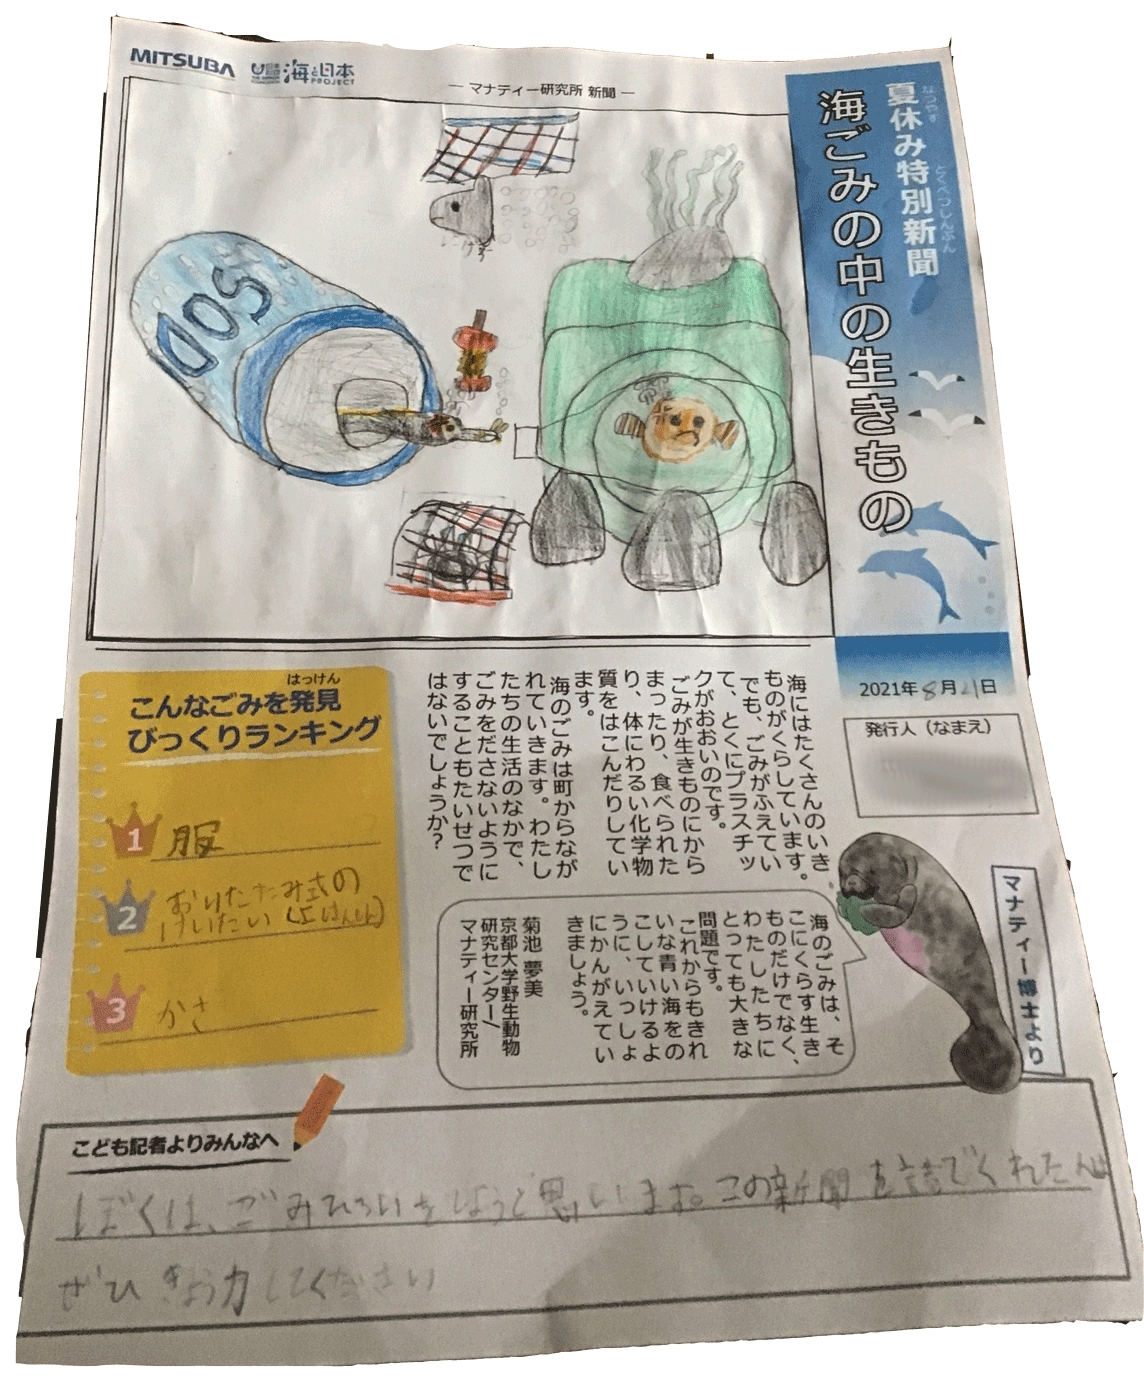 MITSUBA
海と日本
PROJECT
― マナティー研究所 新聞 ―
なつやす
とくべつしんぶん
夏休み特別新聞
海ごみの中の生きもの
SOD
にげろ
2021年8月21日
発行人（なまえ）
海にはたくさんのいき
ものがくらしています。
でも、ごみがふえてい
て、とくにプラスチッ
クがおおいのです。
ごみが生きものにから
まったり、食べられた
り、体にわるい化学物
質をはこんだりしてい
ます。
海のごみは町からなが
れていきます。わたし
たちの生活のなかで、
ごみをださないように
することもたいせつで
はないでしょうか？
はっけん
こんなごみを発見
びっくりランキング
1 服
2 おりたたみ式の
けいたい
3 かさ
マナティー博士より
海のごみは、そ
こにくらす生き
ものだけでなく、
わたしたちに
とっても大きな
問題です。
これからもきれ
いな青い海をの
こしていけるよ
うに、いっしょ
にかんがえてい
きましょう。
菊池 夢美
京都大学野生動物
研究センター/
マナティー研究所
こども記者よりみんなへ
ぼくは、ごみひろいをしようと思います。この新聞を読んでくれた
ぜひきょう力してください